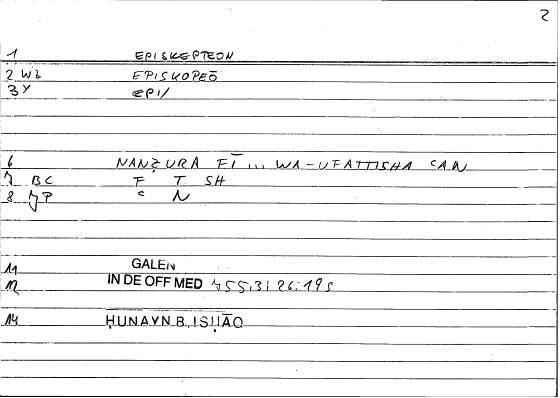 2
1 EPISKEPTEON
2 Wb EPISKOPEŌ
3 Y EPI/
6 NANẒURA FĪ ... WA-UFATTISHA ʿAN
7 BC F T SH
8 JP ʿ N
11 GALEN
12 IN DE OFF MED 455,3: 26.195
14 ḤUNAYN B. ISḤĀQ